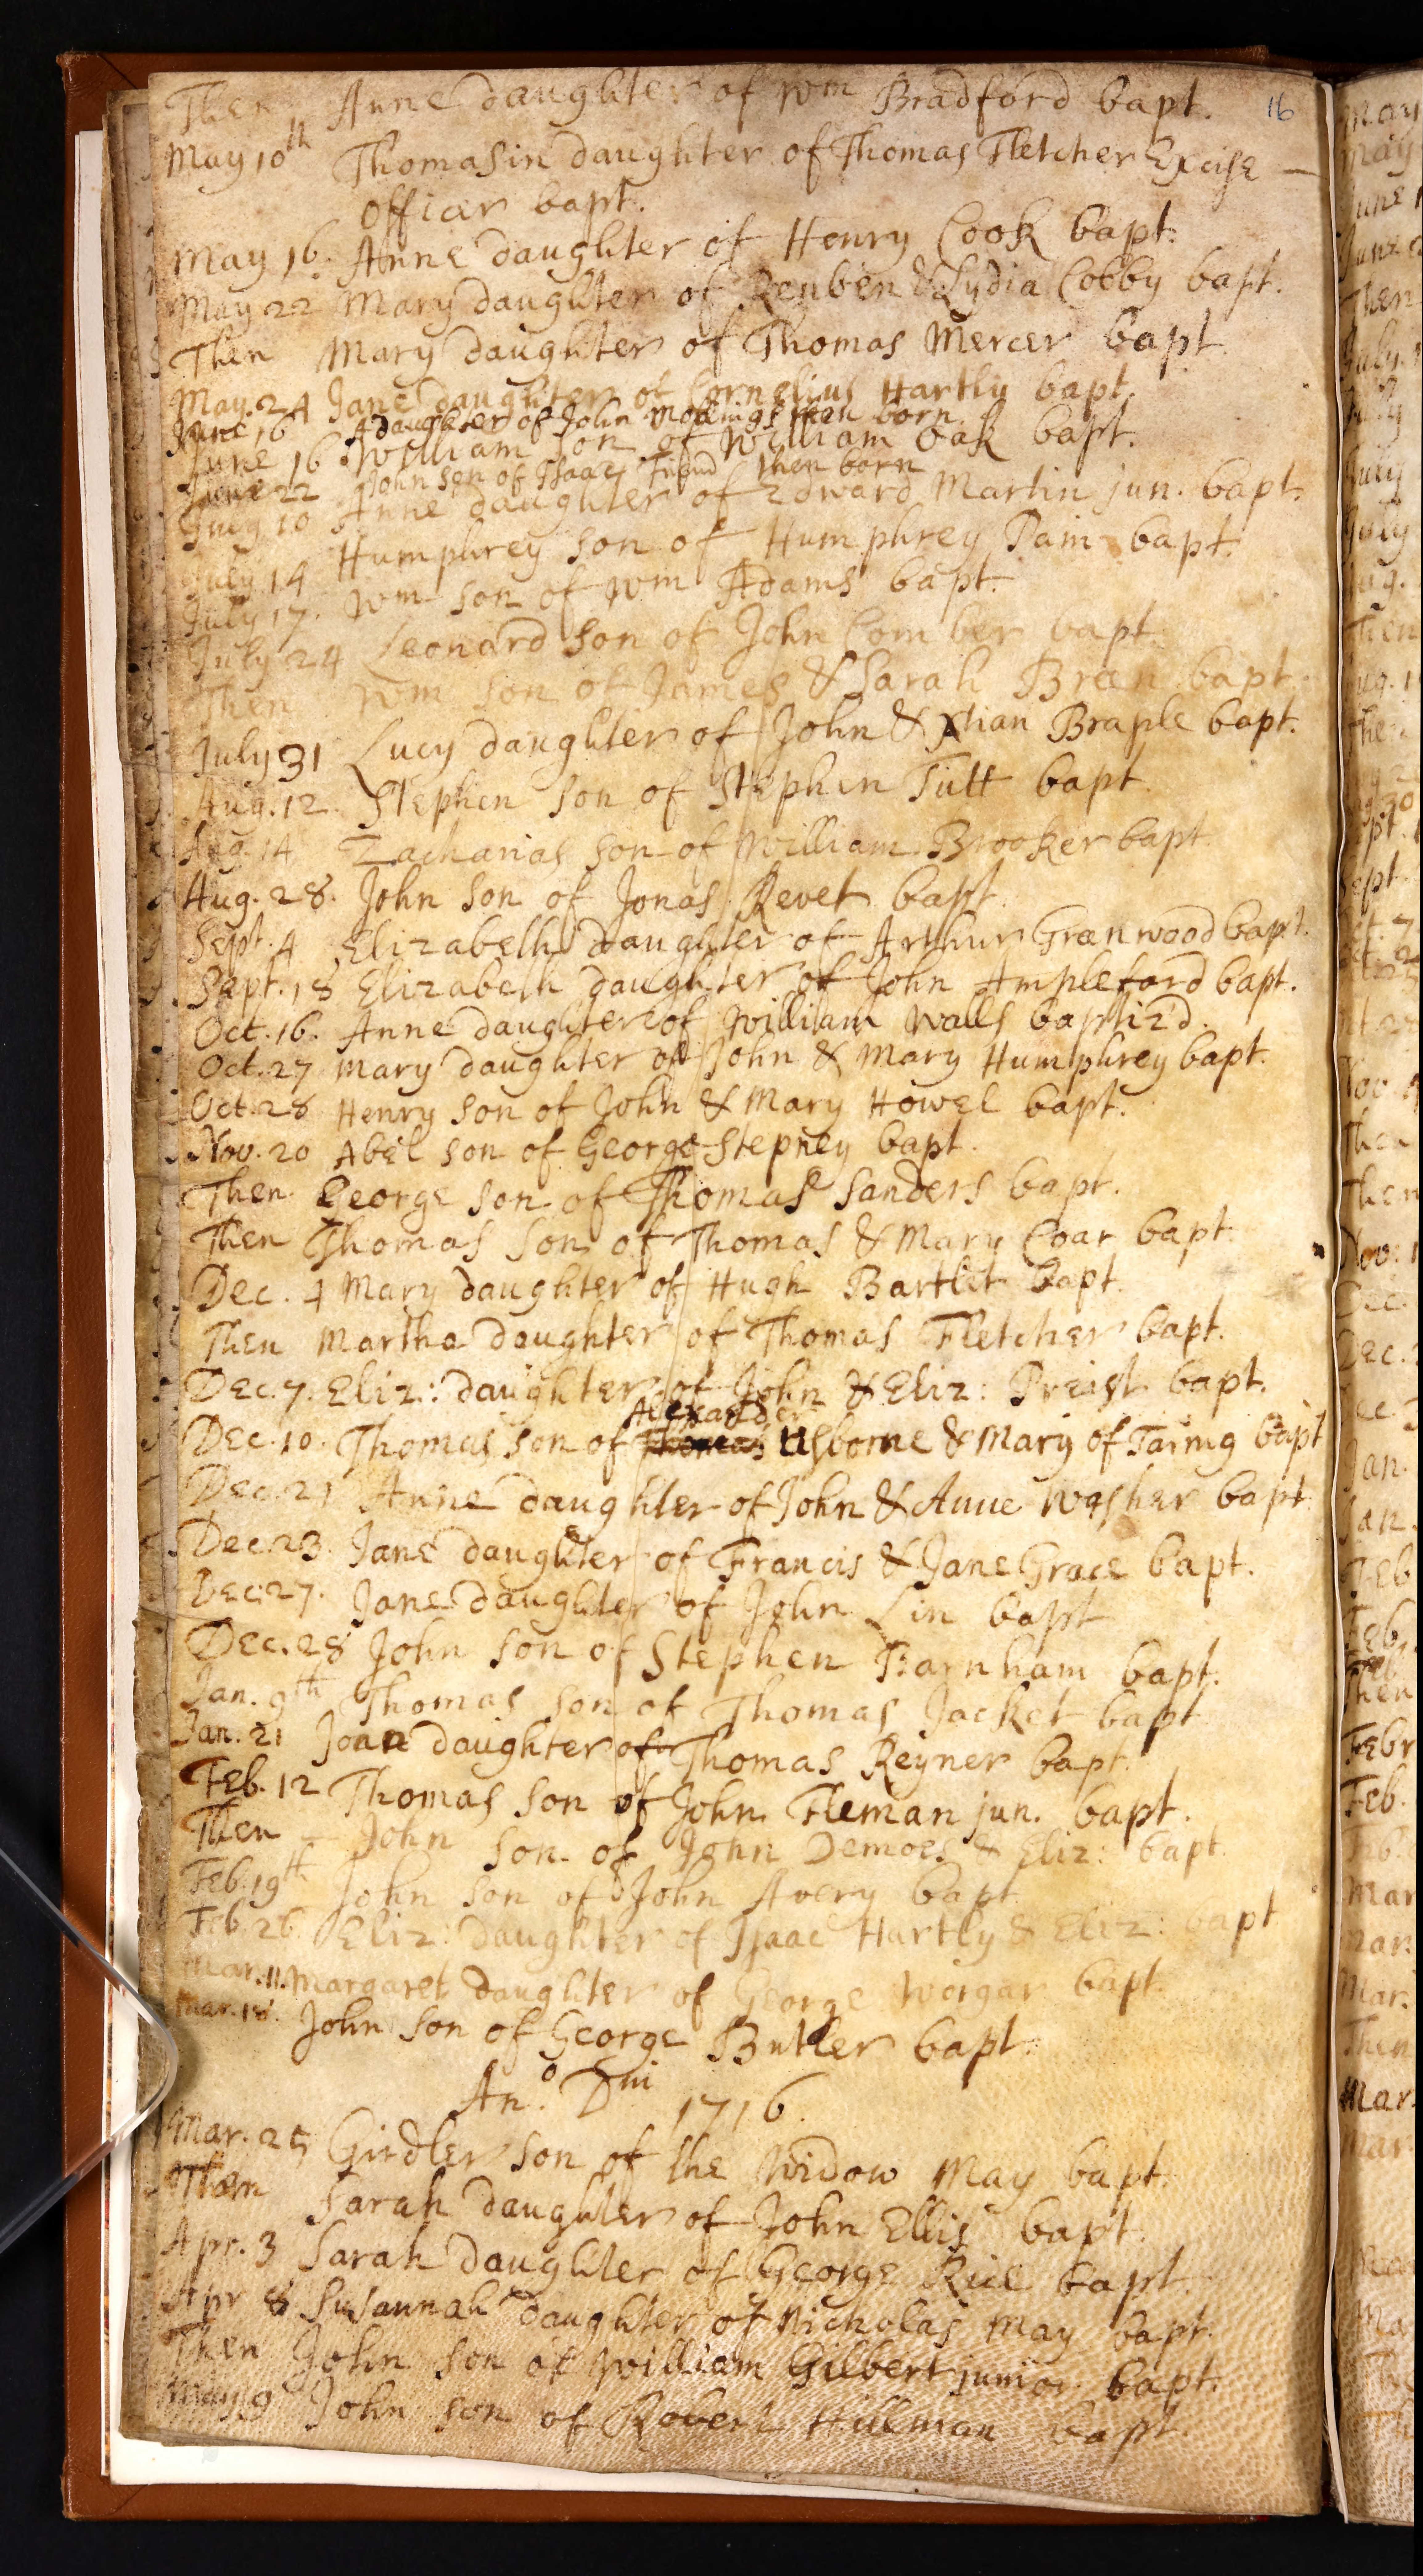 Then Anne daughter of Wm Bradford bapt. 16
May 10th Thomasin daughter of Thomas Fletcher Excise —
officer bapt.
May 16. Anne daughter of Henry Cook bapt.
May 22 Mary daughter of Reuben & Lydia Cobby bapt.
Then Mary daughter of Thomas Mercer bapt
May. 24 Jane daughter of Cornelius Hartly bapt.
June 16 A daughter of John then born
June 16 William son of William Oak bapt.
June 22 John son of Isaac Friend then born
10 Anne daughter of Edward Martin jun. bapt.
July 14 Humphrey son of Humphrey Pain bapt.
July 17. Wm son of Wm Adams bapt.
July 24 Leonard son of John Comber bapt.
Then Wm son of James & Sarah Breen bapt.
July 31 Lucy daughter of John & Xtian Braple bapt.
Aug. 12. Stephen son of Stephen Tutt bapt.
Aug. 14 Zacharias son of William Brooker bapt
Aug. 28. John son of Jonas Revet bapt.
Sept. 4 Elizabeth daughter of Arthur Greenwood bapt.
Sept. 18 Elizabeth daughter of John Ampleford bapt.
Oct. 16. Anne daughter of William Walls baptiz'd.
Oct. 27 Mary daughter of John & Mary Humphrey bapt.
Oct. 28 Henry son of John & Mary Howel bapt.
Nov. 20 Abel son of George Stepney bapt.
Then George son of Thomas Sanders bapt.
Then Thomas son of Thomas & Mary Coar bapt.
Dec. 4 Mary daughter of Hugh Bartlet bapt.
Then Martha daughter of Thomas Fletcher bapt.
Dec. 7. Eliz: daughter of John & Eliz: Preist bapt.
Alexander
Dec. 10. Thomas son of Thomas Usborne & Mary of Taring bapt
Dec. 21 Anne daughter of John & Anne Washer bapt
Dec. 23. Jane daughter of Francis & Jane Grace bapt.
Dec. 27. Jane daughter of John Lin bapt
Dec. 28 John son of Stephen Barnham bapt.
Jan. 9th Thomas son of Thomas Jacket bapt
Jan. 21 Joan daughter of Thomas Reyner bapt.
Feb. 12 Thomas son of John Fleman jun. bapt.
Then — John son of John Demoes & Eliz: bapt.
Feb. 19th John son of John Avery bapt
Feb. 26. Eliz: daughter of Isaac Hartly & Eliz: bapt
Mar. 11. Margaret daughter of George Worgar bapt.
Mar. 18. John son of George Butler bapt.
Ano. Dni 1716.
Mar. 25 Girdler son of the Widow May bapt.
Then Sarah daughter of John Ellis bapt.
Apr. 3 Sarah daughter of George Rice bapt.
Apr 8 Susannah daughter of Nicholas May bapt.
Then John son of William Gilbert junior bapt.
May 9 John son of Robert Hilman bapt.